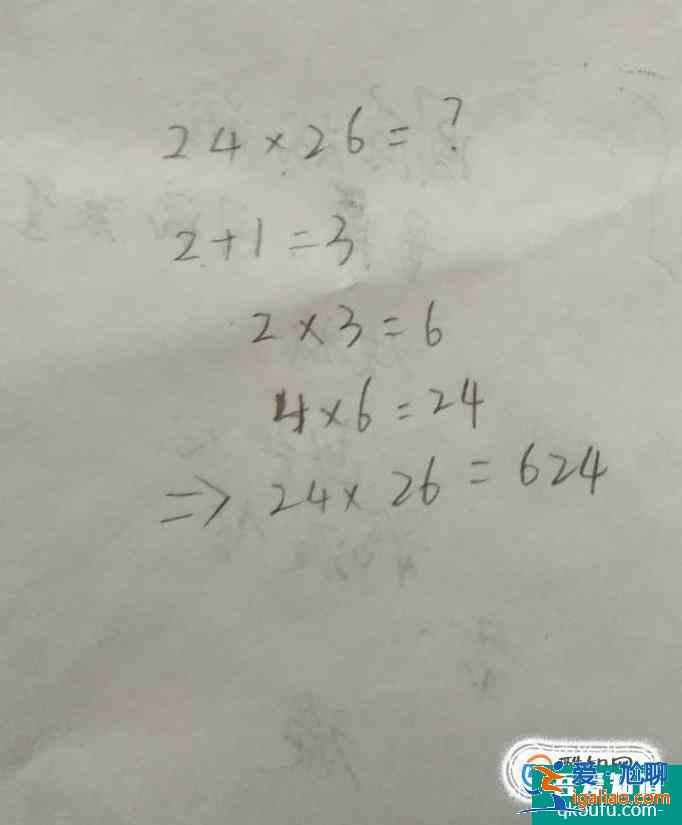 24×26=?
2+1=3
2×3=6
4×6=24
⇒ 24×26=624
爱尬聊
igaliao.com
qkstufu.com